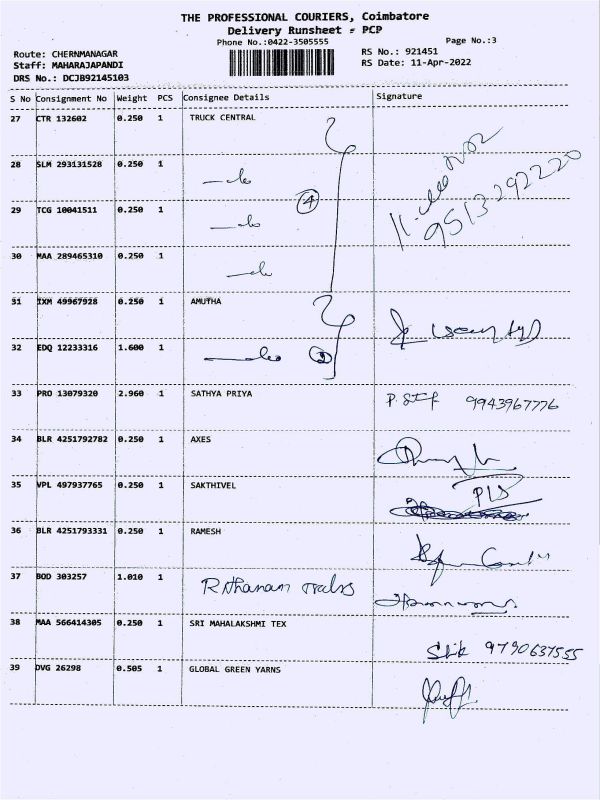 THE PROFESSIONAL COURIERS, Coimbatore
Delivery Runsheet - PCP
Phone No.:0422-3505555 Page No.:3
Route: CHERNMANAGAR RS No.: 921451
Staff: MAHARAJAPANDI RS Date: 11-Apr-2022
DRS No.: DCJB92145103
S No Consignment No Weight PCS Consignee Details Signature
27 CTR 132602 0.250 1 TRUCK CENTRAL
28 SLM 293131528 0.250 1
9513292220
4
29 TCG 10041511 0.250 1
30 MAA 289465310 0.250 1
31 IXM 49967928 0.250 1 AMUTHA
32 EDQ 12233316 1.600 1 2
33 PRO 13079320 2.960 1 SATHYA PRIYA 9943967776
34 BLR 4251792782 0.250 1 AXES
35 VPL 497937765 0.250 1 SAKTHIVEL
36 BLR 4251793331 0.250 1 RAMESH
37 BOD 303257 1.010 1
38 MAA 566414305 0.250 1 SRI MAHALAKSHMI TEX
9790637555
39 DVG 26298 0.505 1 GLOBAL GREEN YARNS